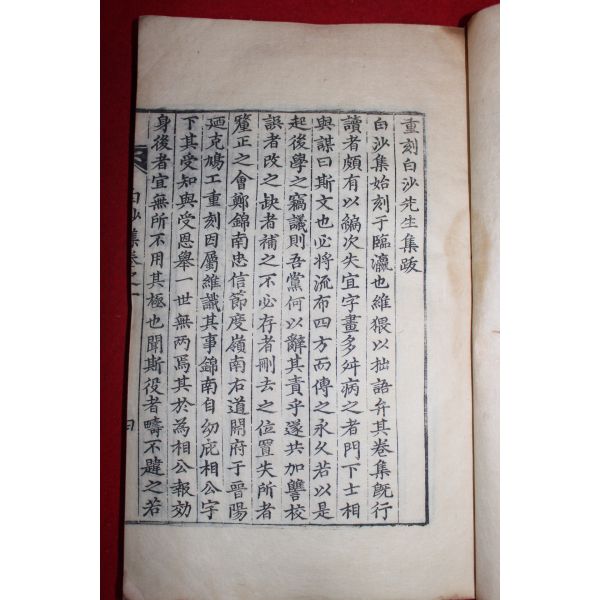 重刻白沙先生集跋
白沙集始刻于臨瀛也維猥以拙語弁其卷集旣行
讀者頗有以編次失宜字畫多舛病之者門下士相
與謀曰斯文也必將流布四方而傳之永久若以是
起後學之竊議則吾黨何以辭其責乎遂共加讐校
誤者改之缺者補之不必存者刪去之位置失所者
釐正之會鄭錦南忠信節度嶺南右道開府于晉陽
廼克鳩工重刻因屬維識其事錦南自幼庇相公字
下其受知與受恩擧一世無兩焉其於為相公報効
身後者宜無所不用其極也聞斯役者疇不韙之若
白沙集卷之一